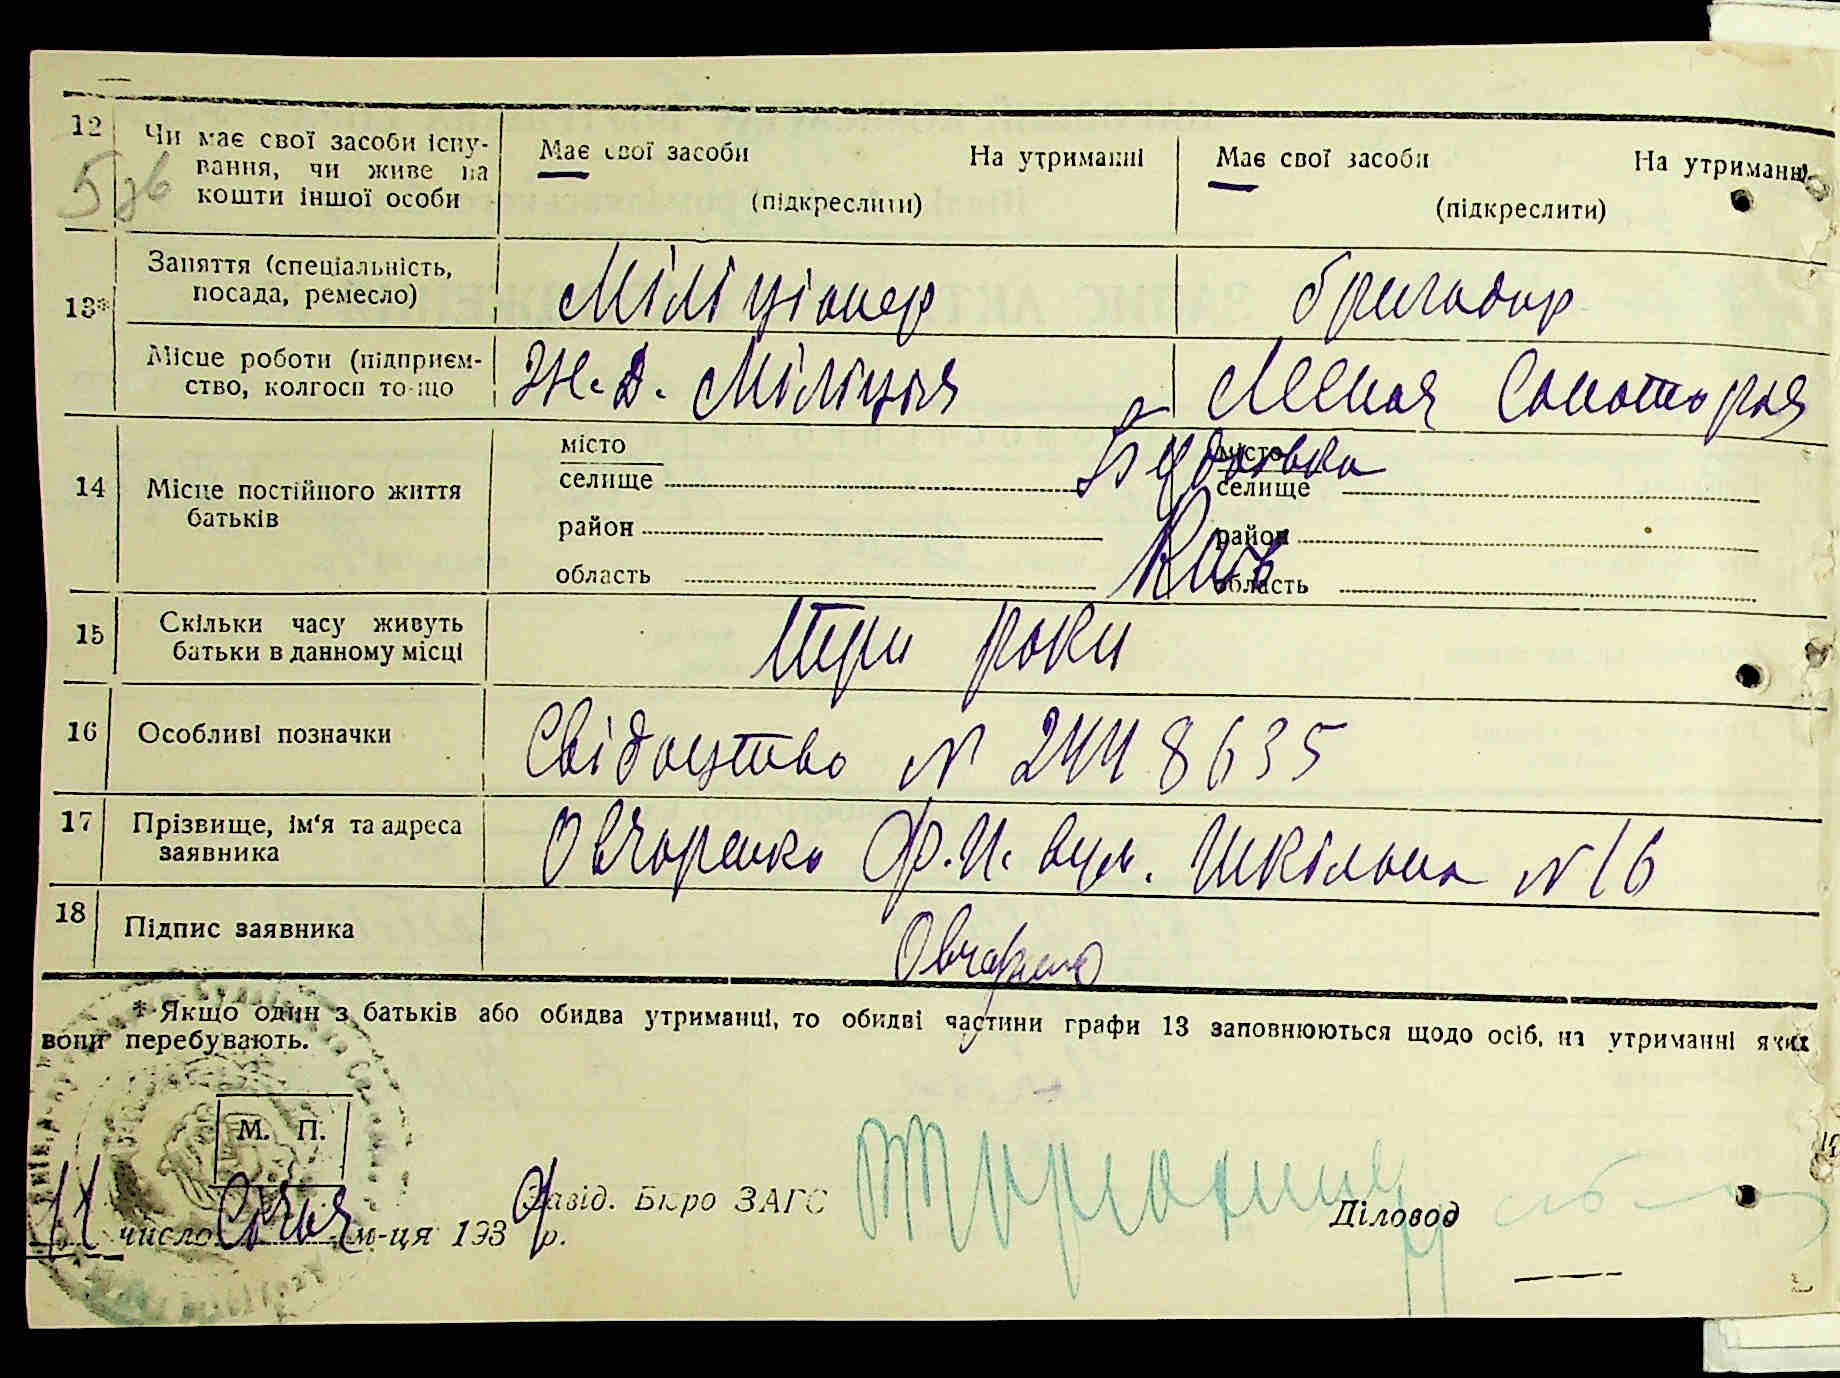 12 Чи має свої засоби існу-
вання, чи живе на
кошти іншої особи
Має свої засоби На утриманні
(підкреслити)
Має свої засоби На утриманні
(підкреслити)
13* Заняття (спеціальність,
посада, ремесло)
Міліціонер
бригадир
Місце роботи (підприєм-
ство, колгосп то-що
Ж.Д. Міліція
Лесная Санатория
14 Місце постійного життя
батьків
місто
селище
район
область
місто
селище
район
область
15 Скільки часу живуть
батьки в данному місці
три роки
16 Особливі позначки
Свідоцтво N 2448635
17 Прізвище, ім'я та адреса
заявника
Овчаренко Ф.И. вул. Шкільна N 16
18 Підпис заявника
Овчаренко
* Якщо один з батьків або обидва утриманці, то обидві частини графи 13 заповнюються щодо осіб, на утриманні яких
вони перебувають.
М. П.
11 число Січня м-ця 1939 р.
Завід. Бюро ЗАГС
Діловод